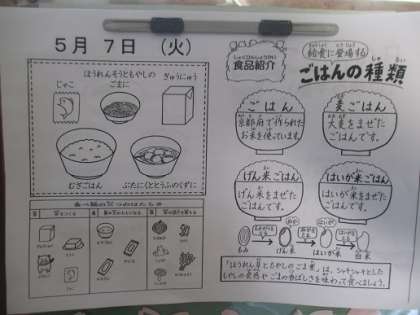 5月 7日 (火)
ほうれんそうともやしの
ごまに
ぎゅうにゅう
じゃこ
むぎごはん
ぶたにくととうふのくずに
食品紹介
給食に登場する
ごはんの種類
ごはん
京都府で作られた
お米を使っています。
麦ごはん
大麦をまぜた
ごはんです。
げん米ごはん
げん米をまぜた
ごはんです。
はいが米ごはん
はいが米をまぜた
ごはんです。
もみ
げん米
はいが米
白米
「ほうれん草ともやしのごま煮」は、シャキシャキとした
もやしの食感やごまの香ばしさを味わって食べましょう。